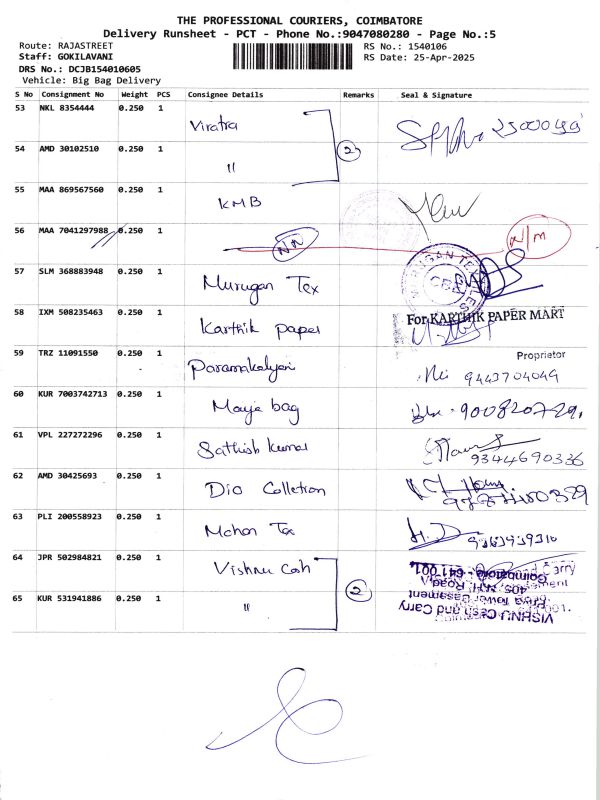 THE PROFESSIONAL COURIERS, COIMBATORE
Delivery Runsheet - PCT - Phone No.:9047080280 - Page No.:5
Route: RAJASTREET
RS No.: 1540106
Staff: GOKILAVANI
RS Date: 25-Apr-2025
DRS No.: DCJB154010605
Vehicle: Big Bag Delivery
S No Consignment No Weight PCS Consignee Details Remarks Seal & Signature
53 NKL 8354444 0.250 1 Viratra
54 AMD 30102510 0.250 1 " 2
55 MAA 869567560 0.250 1 KMB
56 MAA 7041297988 0.250 1 NN N/M
57 SLM 368883948 0.250 1 Murugan Tex
58 IXM 508235463 0.250 1 Karthik paper For KARTHIK PAPER MART
Proprietor
59 TRZ 11091550 0.250 1 Paramakalyani 9443704049
60 KUR 7003742713 0.250 1 Maya bag
61 VPL 227272296 0.250 1 Sathish kumar 9344690336
62 AMD 30425693 0.250 1 Dio Colletion
63 PLI 200558923 0.250 1 Mohan Tex
64 JPR 502984821 0.250 1 Vishnu Cash
65 KUR 531941886 0.250 1 " 2
VISHNU Cash and Carry
Priya Tower Basement
405,
Coimbatore - 641 001